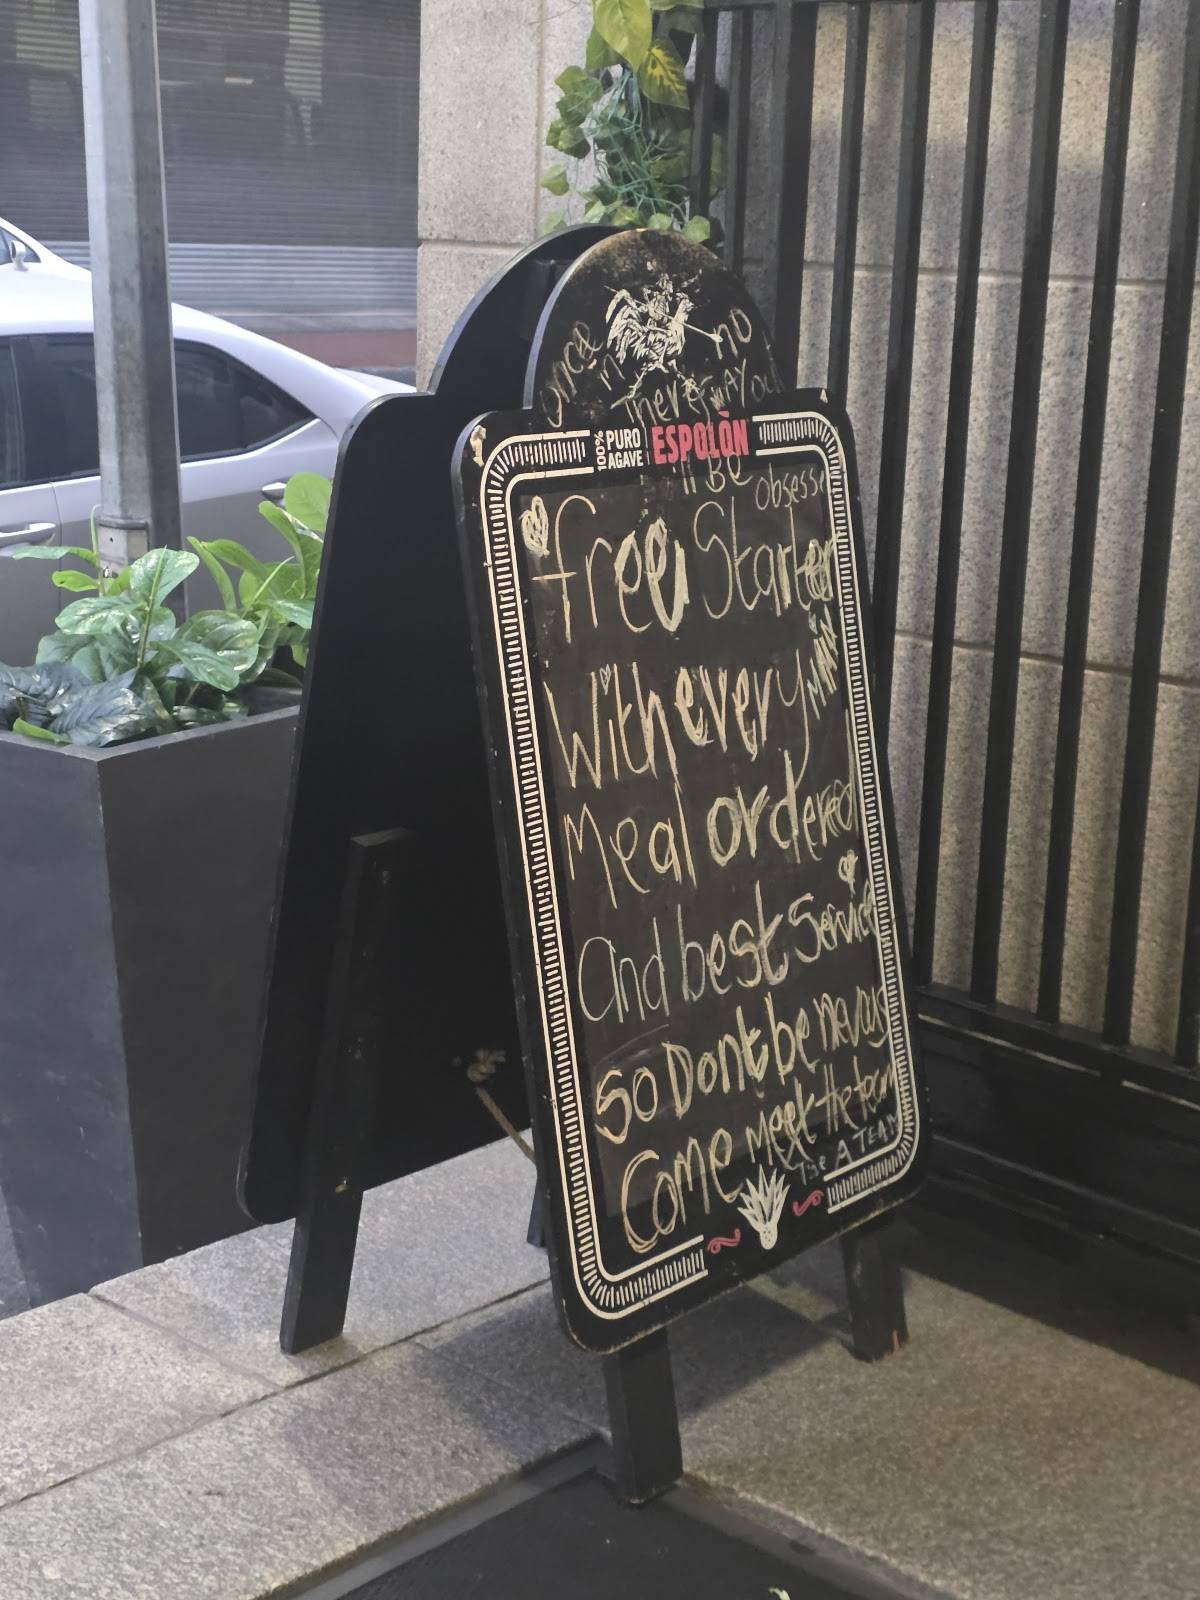 once in no
There's WAY you
'll BE obsesse
100% PURO AGAVE ESPOLÒN
free Starter
With every MAIN
Meal ordered
and best Service
So Dont be nevous
Come Meet the team
The A TEAM